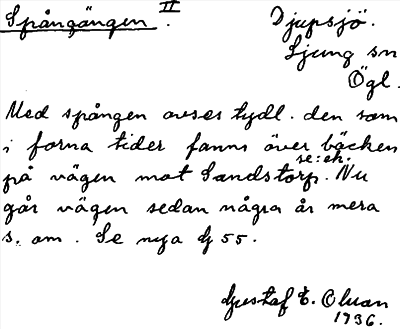 Spångängen II.
Djupsjö.
Ljung sn
Ögl.
Med spången avses tydl. den som
i forna tider fanns över bäcken
på vägen mot Sandstorp. se: ek. Nu
går vägen sedan några år mera
s. om. Se nya G 55.
Gustaf E. Olson
1936.